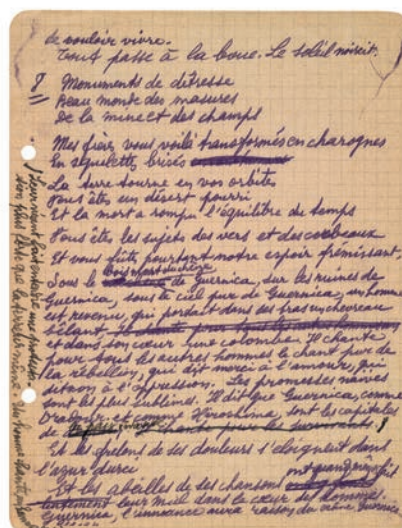 de vouloir vivre.
Tout passe à la boue. Le soleil noircit.
8 Monuments de détresse
Beau monde des masures
De la mine et des champs
Mes frères vous voilà transformés en charognes
En squelettes brisés
La terre tourne en vos orbites
Vous êtes un désert pourri
Et la mort a rompu l'équilibre du temps
Vous êtes les sujets des vers et des corbeaux
Et vous fûtes pourtant notre espoir frémissant,
Sous le bois mort du chêne de Guernica, sur les ruines de
Guernica, sous le ciel pur de Guernica, un homme
est revenu, qui portait dans ses bras un chevreau
bêlant
et dans son cœur une colombe. Il chante
pour tous les autres hommes le chant pur de
la rébellion, qui dit merci à l'amour, qui
dit non à l'oppression. Les promesses naïves
sont les plus sublimes. Il dit que Guernica, comme
Oradour et comme Hiroshima, sont les capitales
de
Et les de ses douleurs s'éloignent dans
l'azur durci
Et les abeilles de ses chansons ont
leur miel dans le cœur des hommes.
Guernica, l'innocence aura raison du crime Guernica